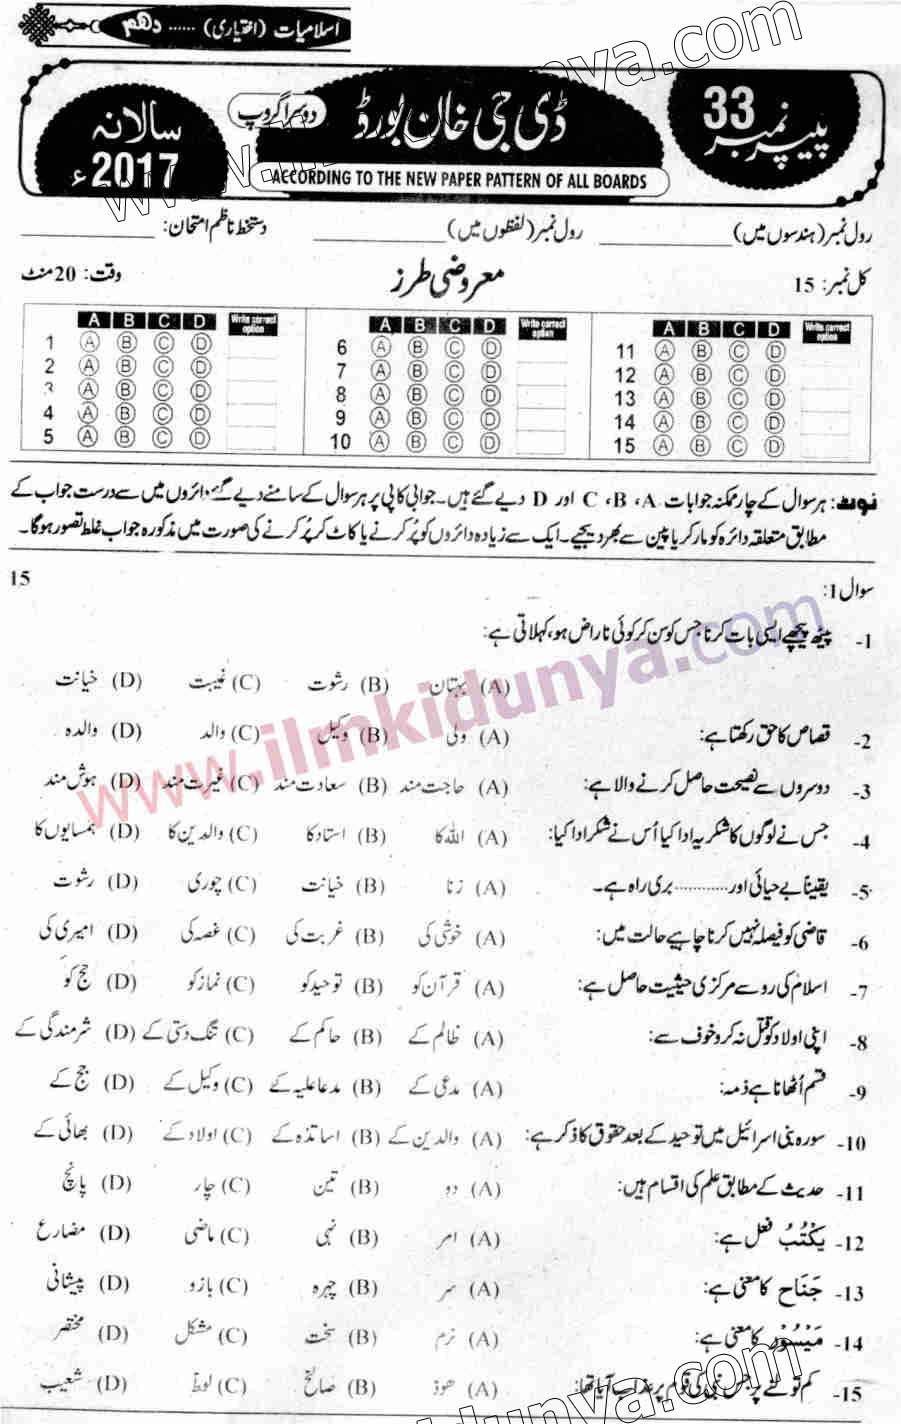 اسلامیات (اختیاری) ...... دہم
پیپر نمبر 33
ڈی جی خان بورڈ
دوسرا گروپ
سالانہ 2017ء
ACCORDING TO THE NEW PAPER PATTERN OF ALL BOARDS
رول نمبر (ہندسوں میں) ____________ رول نمبر (لفظوں میں) ____________ دستخط ناظم امتحان: ____________
کل نمبر: 15 معروضی طرز وقت: 20 منٹ
A B C D Write correct option A B C D Write correct option A B C D Write correct option
1 A B C D 6 A B C D 11 A B C D
2 A B C D 7 A B C D 12 A B C D
3 A B C D 8 A B C D 13 A B C D
4 A B C D 9 A B C D 14 A B C D
5 A B C D 10 A B C D 15 A B C D
نوٹ: ہر سوال کے چار ممکنہ جوابات C ،B ،A اور D دیے گئے ہیں۔ جوابی کاپی پر ہر سوال کے سامنے دیے گئے دائروں میں سے درست جواب کے
مطابق متعلقہ دائرہ کو مارکر یا پین سے بھر دیجیے۔ ایک سے زیادہ دائروں کو پُر کرنے یا کاٹ کر پُر کرنے کی صورت میں مذکورہ جواب غلط تصور ہوگا۔
سوال 1: 15
1- پیٹھ پیچھے ایسی بات کرنا جس کو سن کر کوئی ناراض ہو، کہلاتی ہے:
(A) بہتان (B) رشوت (C) غیبت (D) خیانت
2- قصاص کا حق رکھتا ہے: (A) ولی (B) وکیل (C) والد (D) والدہ
3- دوسروں سے نصیحت حاصل کرنے والا ہے: (A) حاجت مند (B) سعادت مند (C) غیرت مند (D) ہوش مند
4- جس نے لوگوں کا شکریہ ادا کیا اُس نے شکر ادا کیا: (A) اللہ کا (B) استاد کا (C) والدین کا (D) ہمسایوں کا
5- یقیناً بے حیائی اور ............ بری راہ ہے۔ (A) زنا (B) خیانت (C) چوری (D) رشوت
6- قاضی کو فیصلہ نہیں کرنا چاہیے حالت میں: (A) خوشی کی (B) غربت کی (C) غصہ کی (D) امیری کی
7- اسلام کی رو سے مرکزی حیثیت حاصل ہے: (A) قرآن کو (B) توحید کو (C) نماز کو (D) حج کو
8- اپنی اولاد کو قتل نہ کرو خوف سے: (A) ظالم کے (B) حاکم کے (C) تنگ دستی کے (D) شرمندگی کے
9- قسم اُٹھانا ہے ذمہ: (A) مدعی کے (B) مدعا علیہ کے (C) وکیل کے (D) جج کے
10- سورہ بنی اسرائیل میں توحید کے بعد حقوق کا ذکر ہے: (A) والدین کے (B) اساتذہ کے (C) اولاد کے (D) بھائی کے
11- حدیث کے مطابق علم کی اقسام ہیں: (A) دو (B) تین (C) چار (D) پانچ
12- یَکْتُبُ فعل ہے: (A) امر (B) نہی (C) ماضی (D) مضارع
13- جَنَاح کا معنی ہے: (A) سر (B) چہرہ (C) بازو (D) پیشانی
14- مَیْسُوْر کا معنی ہے: (A) نرم (B) سخت (C) مشکل (D) مختصر
15- کم تولنے پر جس نبی کی قوم پر عذاب آیا تھا: (A) ھودؑ (B) صالحؑ (C) لوطؑ (D) شعیبؑ
www.ilmkidunya.com